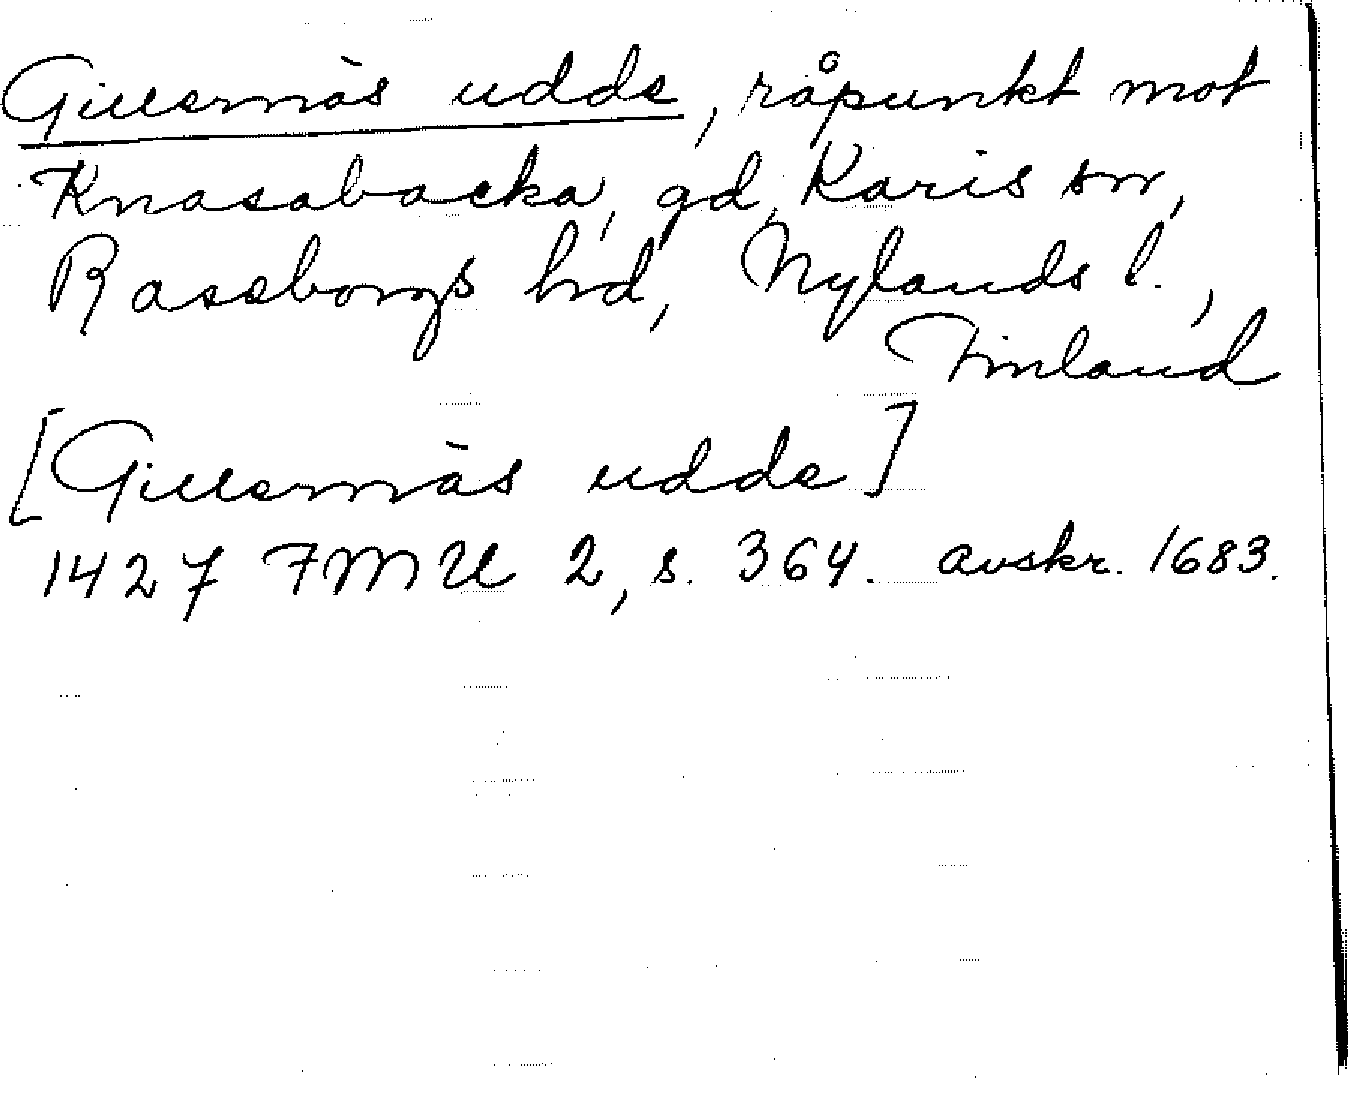 Gillernäs udde, råpunkt mot
Knasabacka, gd, Karis sn,
Raseborgs hrd, Nylands l.,
Finland
[Gillernäs udde]
1427 FMU 2, s. 364. avskr. 1683.